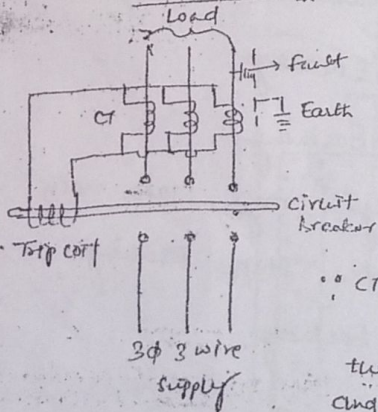 Load
Fault
CT
Earth
Circuit
Breaker
Trip coil
∴ CT
3ϕ 3 wire
Supply
and